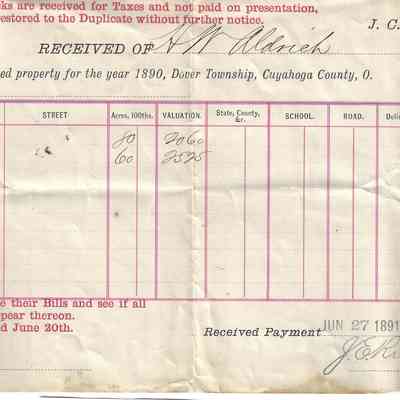 ks are received for Taxes and not paid on presentation,
restored to the Duplicate without further notice.
J. C.
RECEIVED OF H W Aldrich
ed property for the year 1890, Dover Township, Cuyahoga County, O.
STREET Acres, 100ths. VALUATION. State, County, &c. SCHOOL. ROAD. Deli
80 2060
60 2525
e their Bills and see if all
pear thereon.
d June 20th.
Received Payment JUN 27 1891